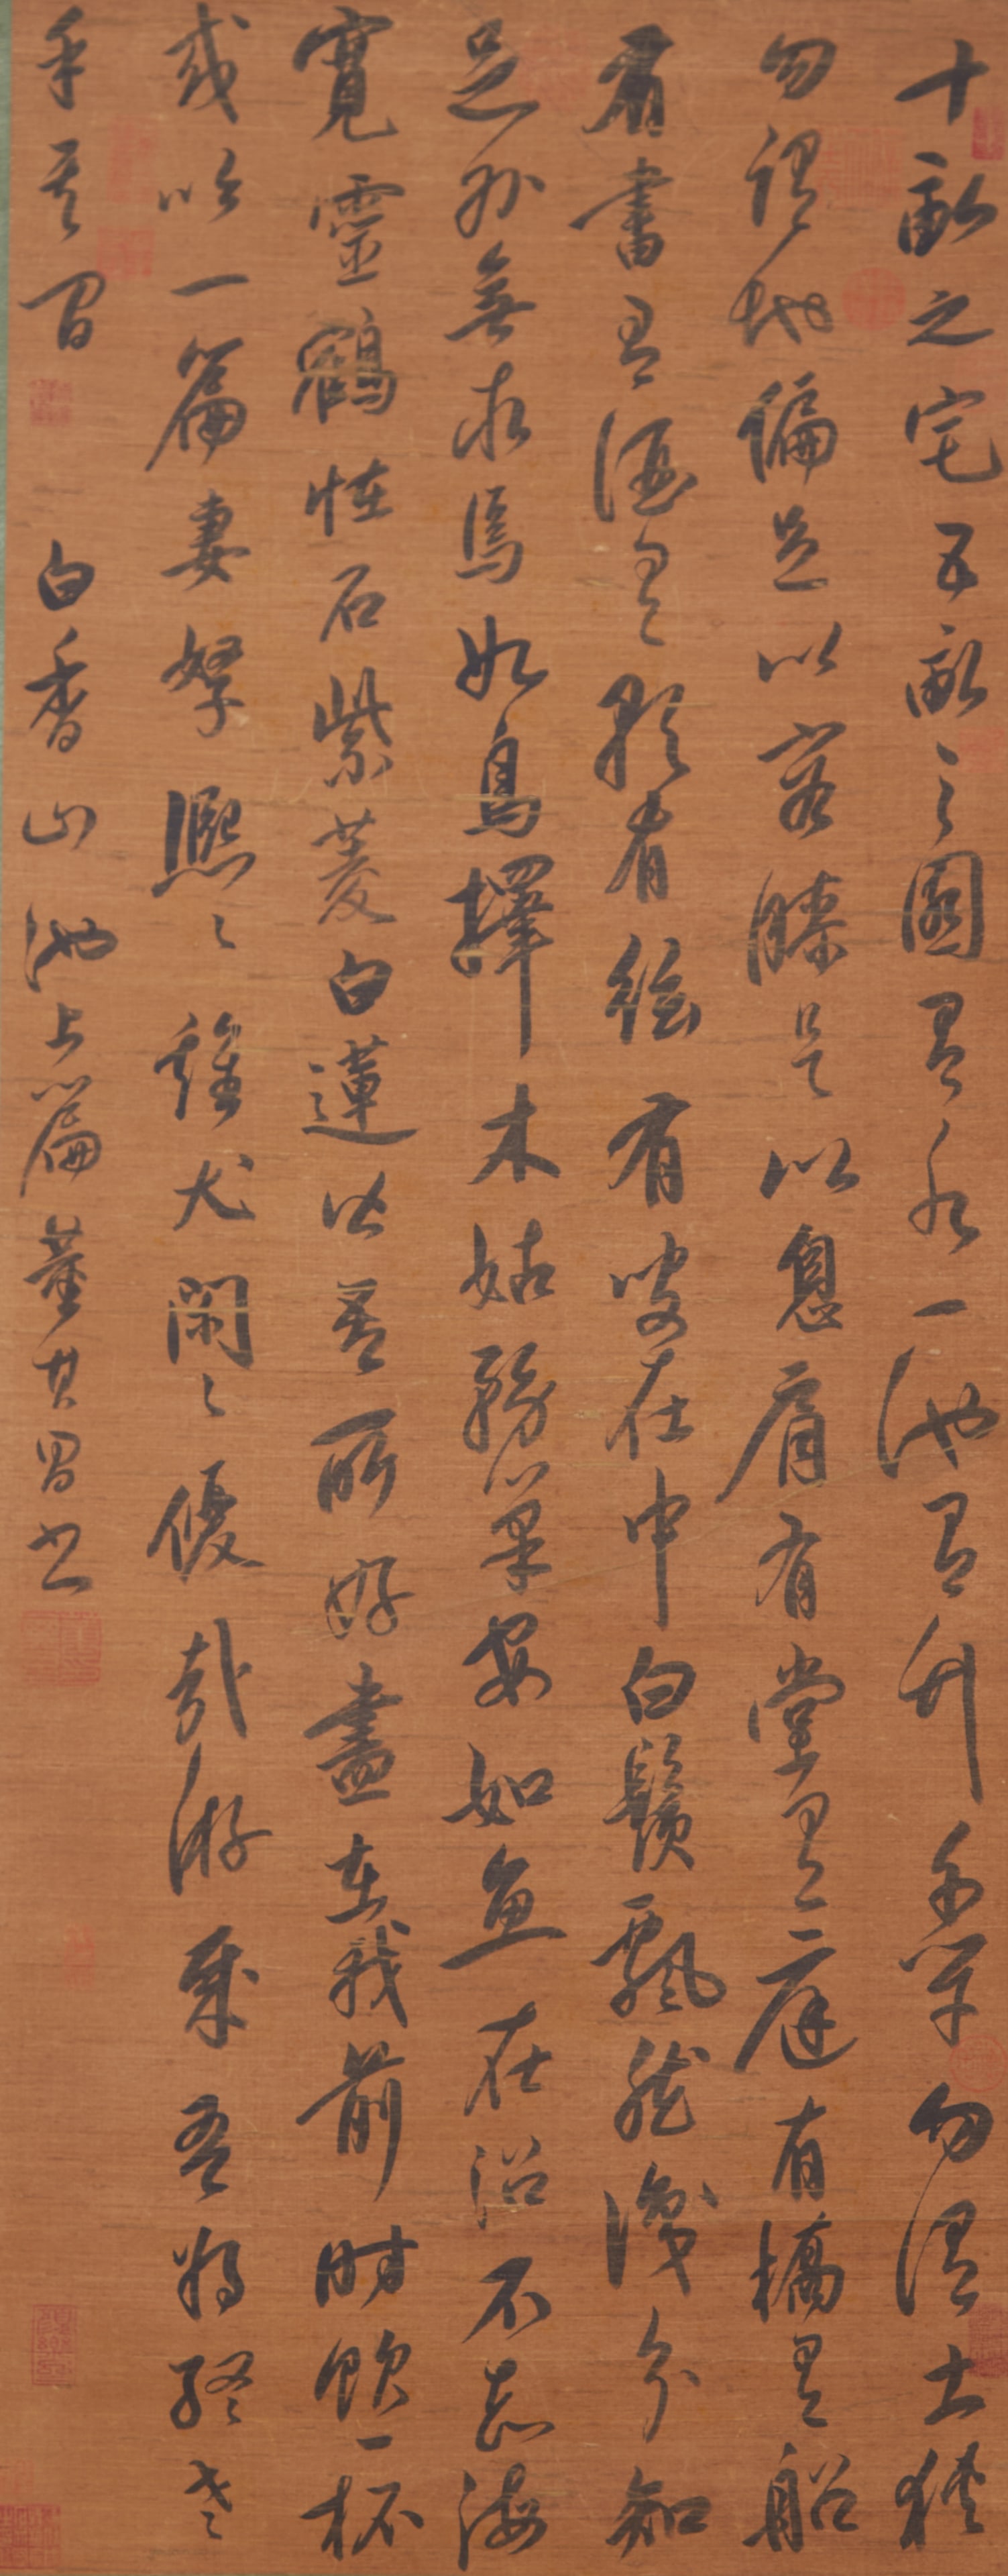 十畝之宅五畝之園有水一池有竹千竿勿謂土狹
勿謂地偏足以容膝足以息肩有堂有庭有橋有船
有書有酒有歌有絃有叟在中白鬚飄然識分知
足外無求焉如鳥擇木姑務巢安如魚在沼不志海
寬靈鶴怪石紫菱白蓮皆吾所好盡在我前時飲一杯
或吟一篇妻孥熙々雞犬閑々優哉游哉吾將終老
乎其間 白香山池上篇董其昌書